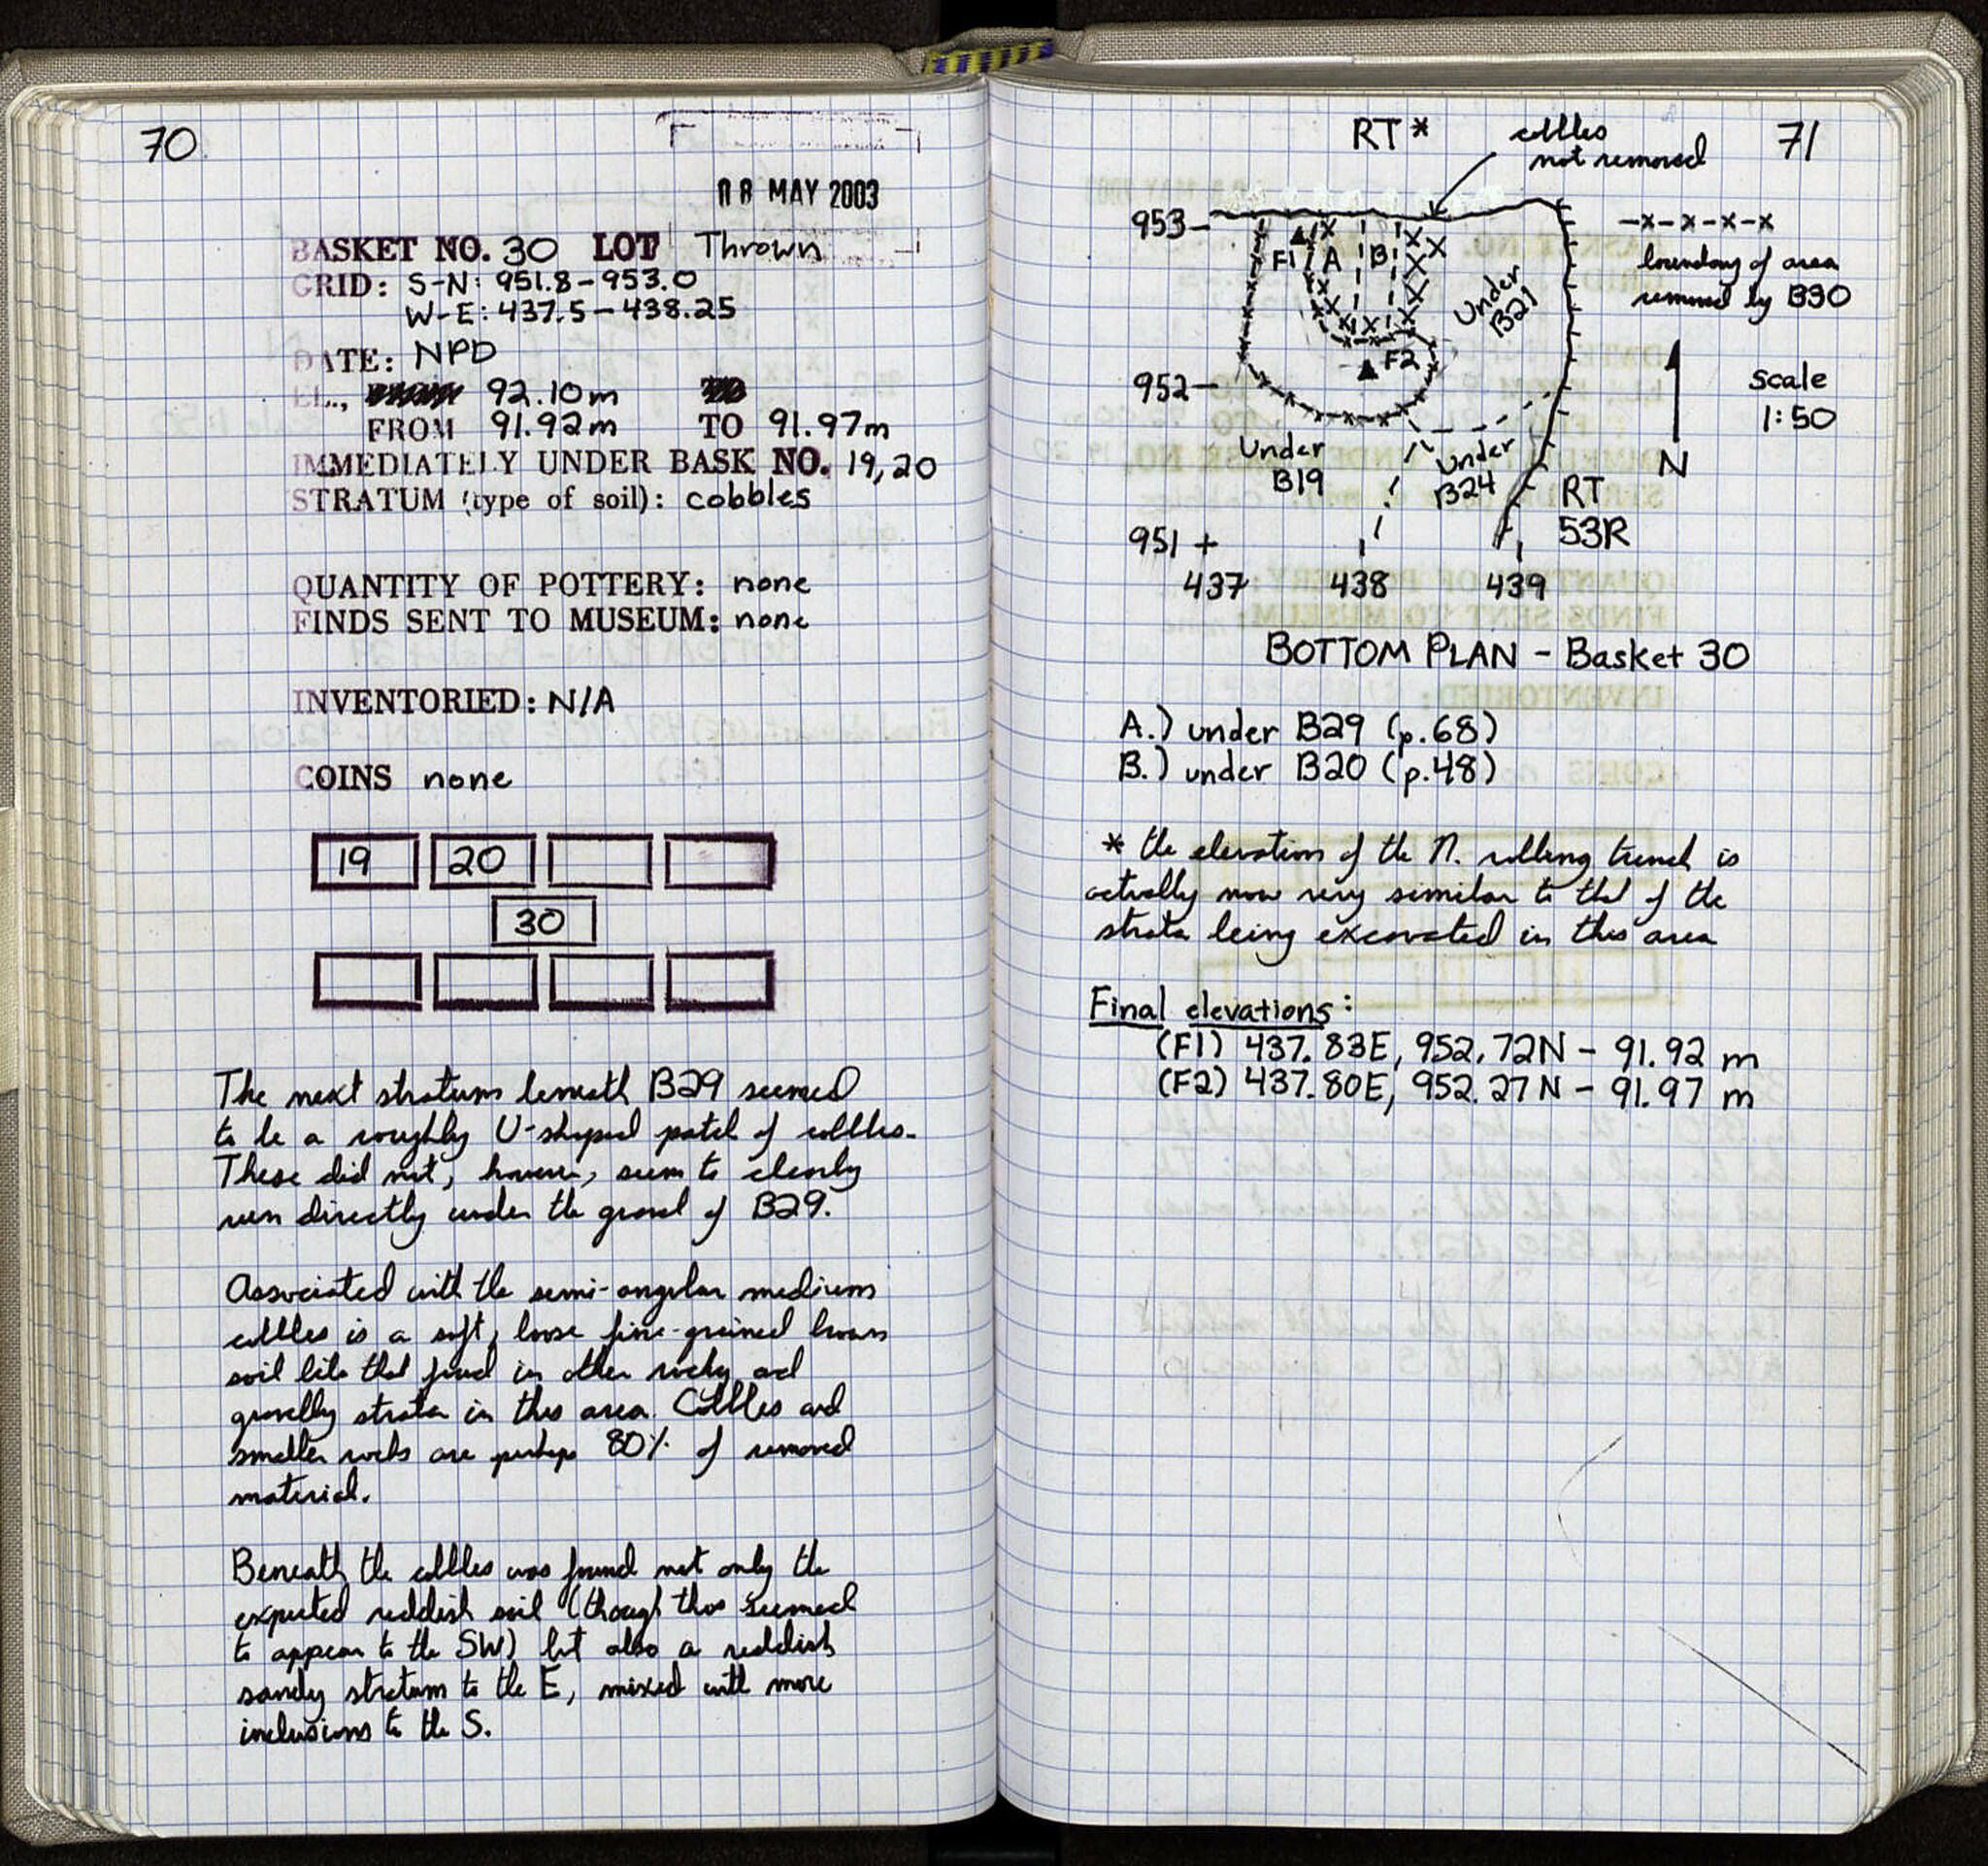 70
08 MAY 2003
BASKET NO. 30 LOT Thrown
GRID: S-N: 951.8-953.0
W-E: 437.5-438.25
DATE: NPD
EL., 92.10m
FROM 91.92m TO 91.97m
IMMEDIATELY UNDER BASK NO. 19,20
STRATUM (type of soil): cobbles
QUANTITY OF POTTERY: none
FINDS SENT TO MUSEUM: none
INVENTORIED: N/A
COINS none
19 20
30
The next stratum beneath B29 seemed
to be a roughly U-shaped patch of cobbles.
These did not, however, seem to clearly
run directly under the gravel of B29.
Associated with the semi-angular medium
cobbles is a soft, loose fine-grained brown
soil like that found in other rocky and
gravelly strata in this area. Cobbles and
smaller rocks are perhaps 80% of removed
material.
Beneath the cobbles was found not only the
expected reddish soil (though this seemed
to appear to the SW) but also a reddish
sandy stratum to the E, mixed with more
inclusions to the S.
RT*
cobbles
not removed
71
953
F1 A B
Under
B21
-x-x-x-x
boundary of area
removed by B30
F2
952
scale
1:50
N
Under
B19
Under
B24
RT
53R
951 +
437 438 439
BOTTOM PLAN - Basket 30
A.) under B29 (p.68)
B.) under B20 (p.48)
* the elevation of the N. robbing trench is
actually now very similar to that of the
strata being excavated in this area
Final elevations:
(F1) 437.83E, 952.72N - 91.92 m
(F2) 437.80E, 952.27N - 91.97 m